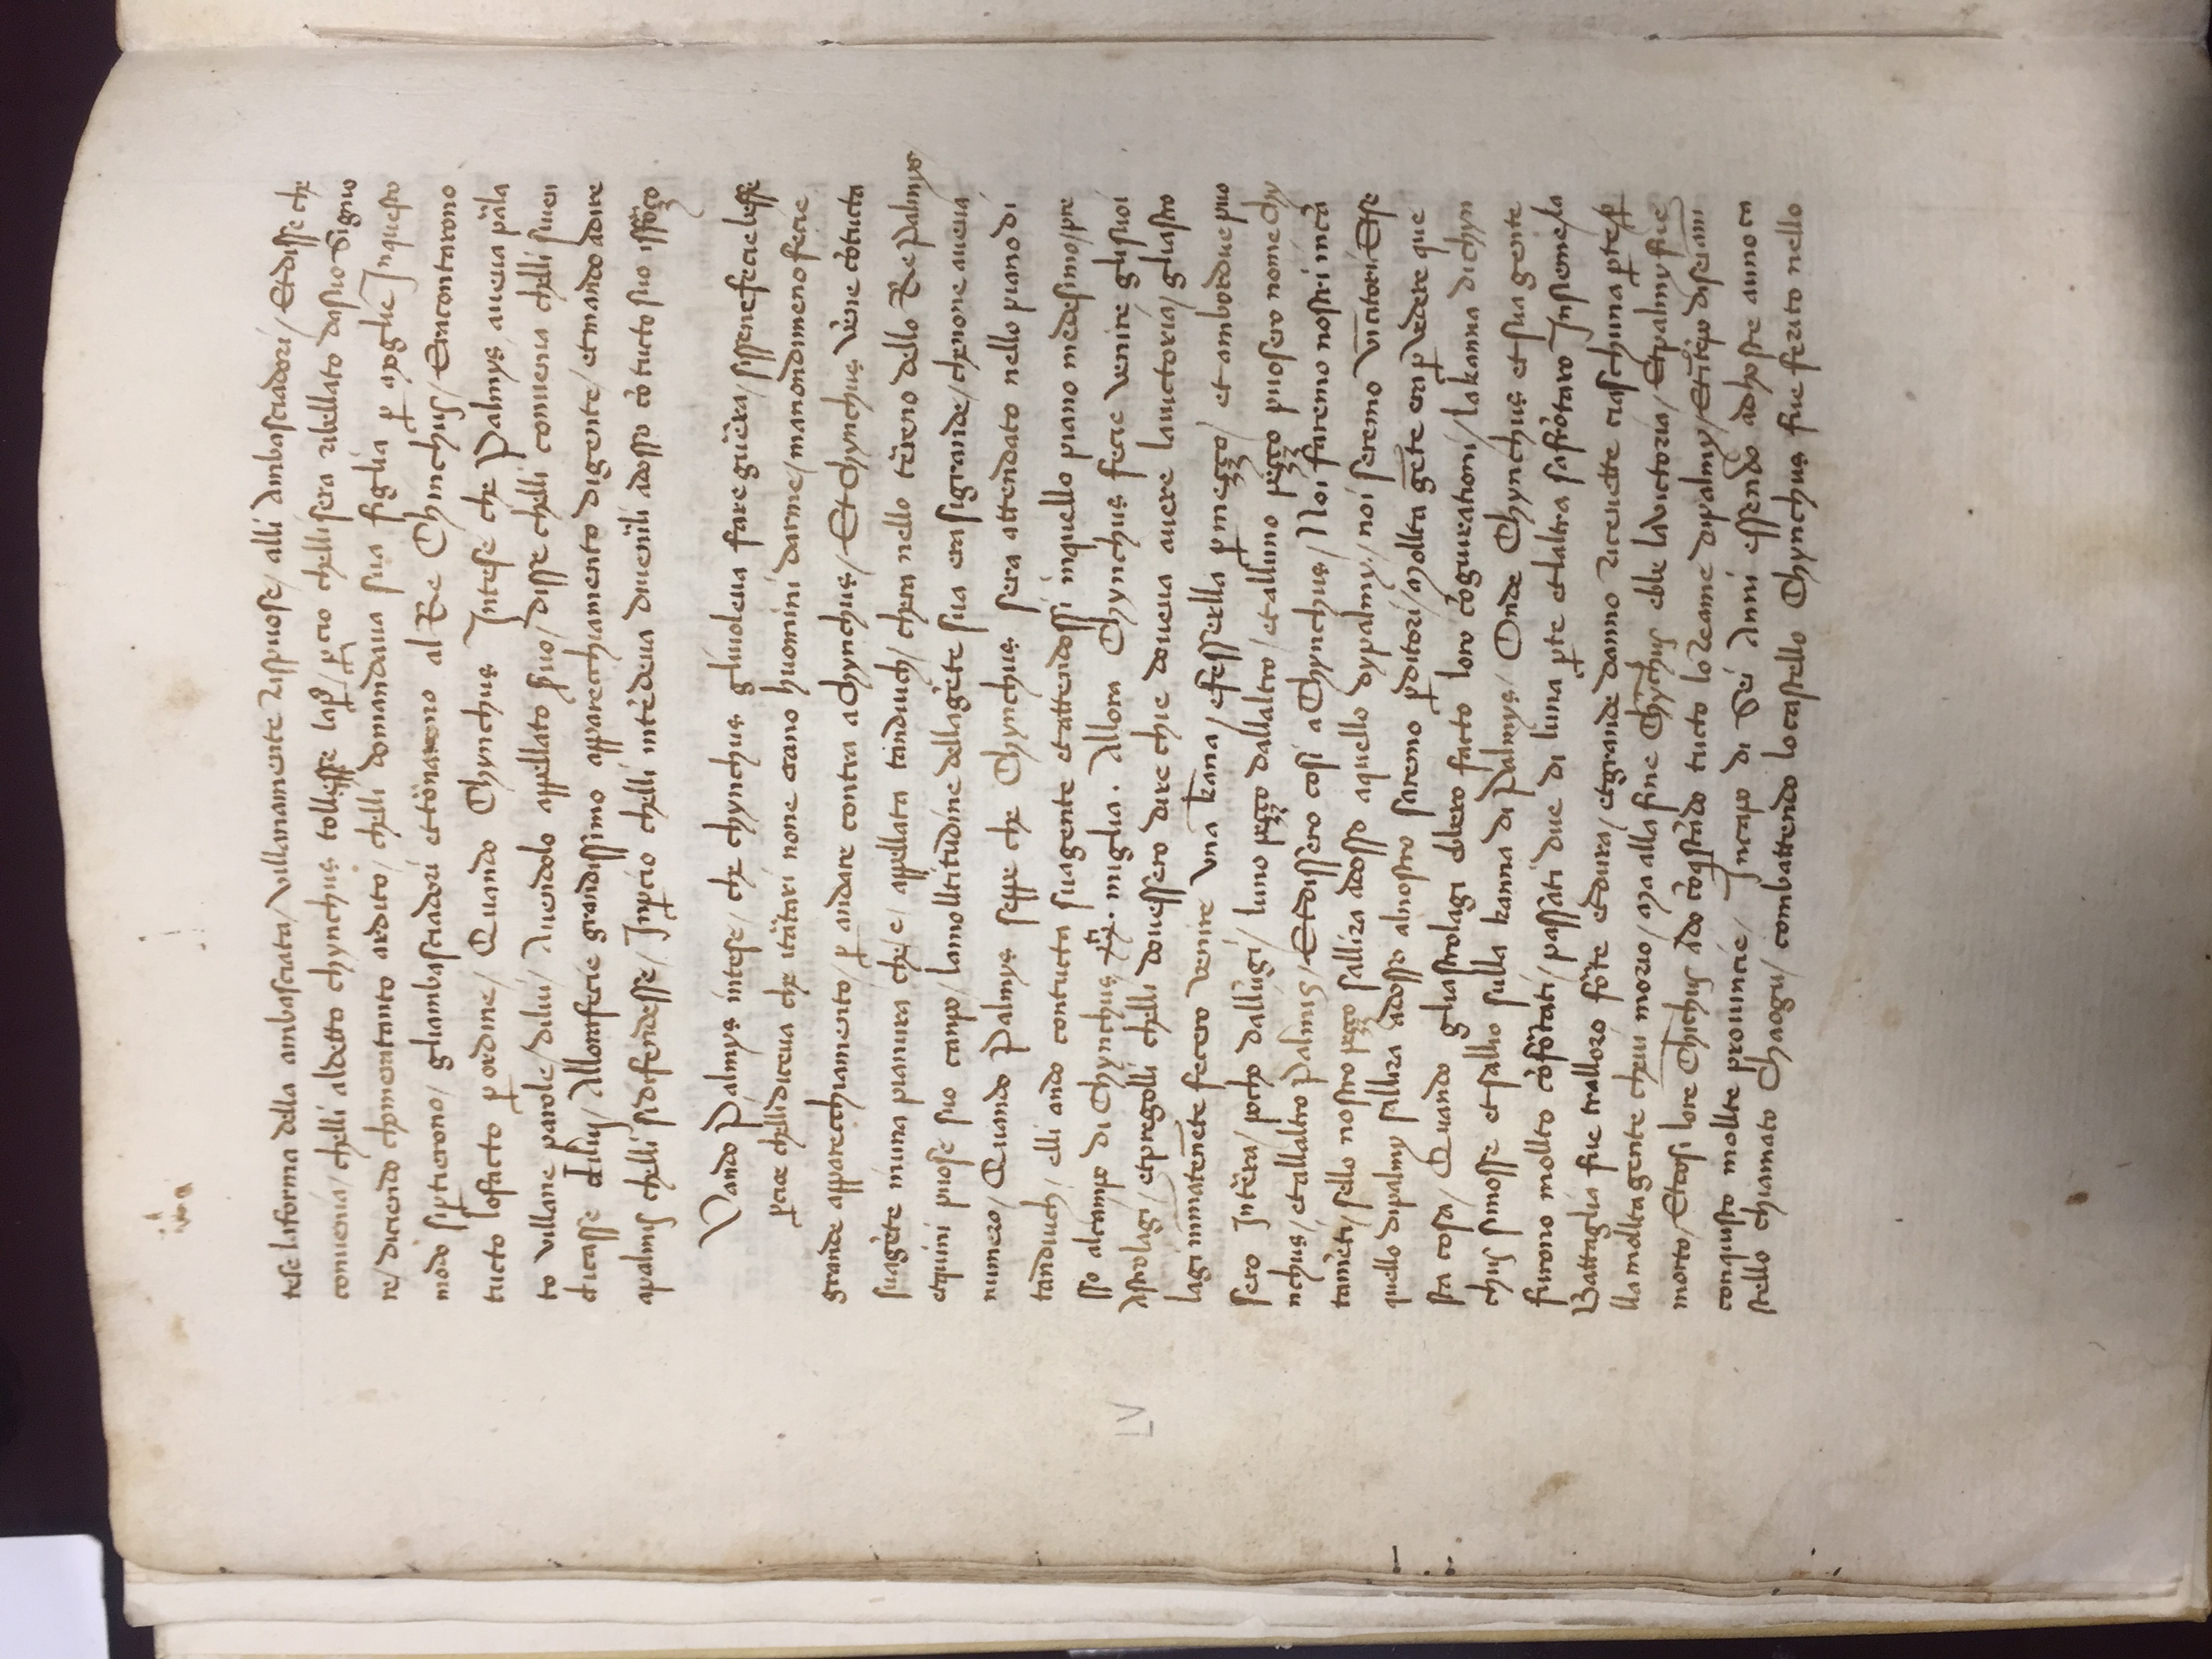 tese laforma della ambasciata / villanamente rispuose / alli Ambasciadori / Et disse che
convenia / chelli aldetto chynchus tollesse lap̄ / ꝑcio chellisera ribellato dasuo Signo
re / diciendo chemeratanto ardito / chelli domandava sua figlia ꝑ moglie Inquesto
modo siꝑtierono / gliambasciadori ettōnarono al Re Chinchus / Eracontarono
tucto lofacto ꝑ ordine / Quando Chynchus Intese che Palmys aveva pāla
to villane parole / dilui / Avendolo appellato s̄vo / disse chelli convenia chelli siven
dicasse diluj / Allorafecie grandissimo apparecchiamento digente / etmando adire
apalmis chelli sidifendesse / Inꝑcio chelli intēdeva divenīli adosso cō tucto suo isfōzo
Vando Palmys intese / che chynchus glivoleva fare guēra / sissenefecie beffe
ꝑcioe chellidiceva che itātari none erano huomini darme / manondimeno fecie
grande apparecchiamento / ꝑ andare contra a Chynchus / Et Chynchus vēne cōtucta
suagēte inuna pianura che / e / appellata tanduich / chera nello tēreno dello Re Palmys /
etquini puose suo canpo / lamolltitudine dellagēte sua era sigrande / chenone aveva
numero / Quando Palmys seppe che Chynchus sera attendato nello piano di
tanduich / elli ando contucta suagente etattendossi inquello piano medesimo / pre
sso alcampo di Chynchus xx. miglia. Allora Chynchus fecie venire glisuoi
LV
Astrolagi / etpregolli chelli dovessero dire chie doveva avere lavictoria / gliastro
lagi inmātenēte fecero venire una kāna / efesserlla ꝑ mezzo / et ambordue puo
sero Intēra / pocho dallūgi / luno pezzo dallaltro / et alluno pezzo puosero nome Chy
nchus / etallaltro Palmis / Etdissero cosi a Chynchus / Noi faremo nostri incā
tamēti / sello nostro pezzo sallira adosso aquello dypalmy. / noi seremo vīcitori Etse
quello dipalmy sallira adosso alnostro saremo ꝑditori / Mollta gēte era ꝑ vedere que
sta cosa / Quando gliastrolagi ebbero facto loro cōgiurationi / la kanna dichyn
chus simosse et sallio sulla kanna di Palmys / Onde Chynchus et sua gente
furono mollto cōfōtati / passati due di luna ꝑte etlaltra safrōtaro Insieme / la
Battaglia fue tralloro fōte et dura / etgrande danno ricevette ciaschuna ꝑte / ꝑ
lla mollta gente chevi morio / Ma alla fine Chȳchus ebbe lavictoria / Etpalmy fue
morto / Etcosi lore Chīchus ādo cōq̄stādo tucto lo reame dipalmy / Et ītēpo diseianī
conquisto mollte provincie / Incapo di Sei Anni essendo adhoste auno ca
stello chiamato Chaogu / combattendo locastello Chynchus fue ferito nello